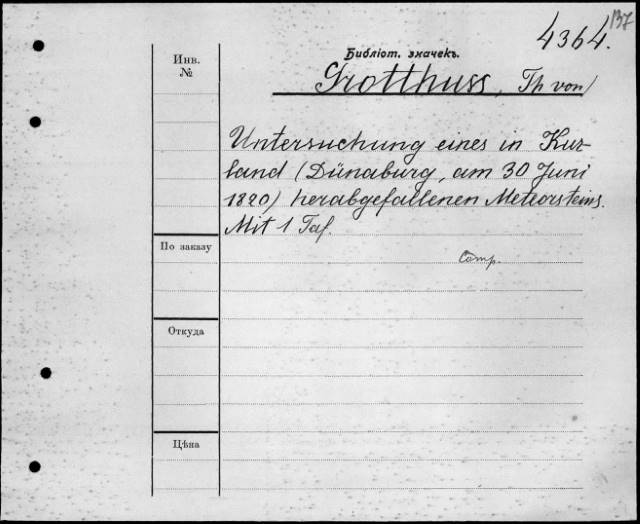 137
4364.
Инв.
№
Библіот. значекъ.
Grotthuss, Th von)
Untersuchung eines in Kur-
land (Dünaburg, am 30 Juni
1820) herabgefallenen Meteorsteins.
Mit 1 Taf.
По заказу
Comp.
Откуда
Цѣна